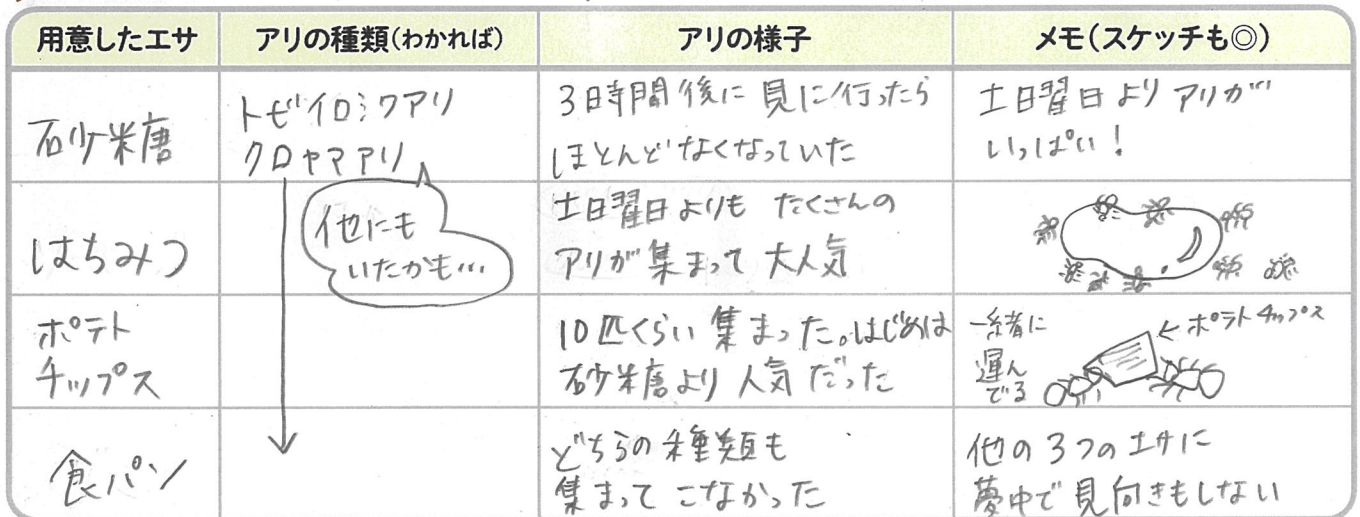 用意したエサ
アリの種類(わかれば)
アリの様子
メモ(スケッチも◎)
砂糖
トビイロシワアリ
クロヤマアリ
3時間後に見に行ったら
ほとんどなくなっていた
土日曜日よりアリが
いっぱい!
はちみつ
他にも
いたかも…
土日曜日よりも たくさんの
アリが集まって大人気
ポテト
チップス
10匹くらい集まった。はじめは
砂糖より人気だった
一緒に
運ん
でる
←ポテトチップス
食パン
どちらの種類も
集まってこなかった
他の3つのエサに
夢中で見向きもしない